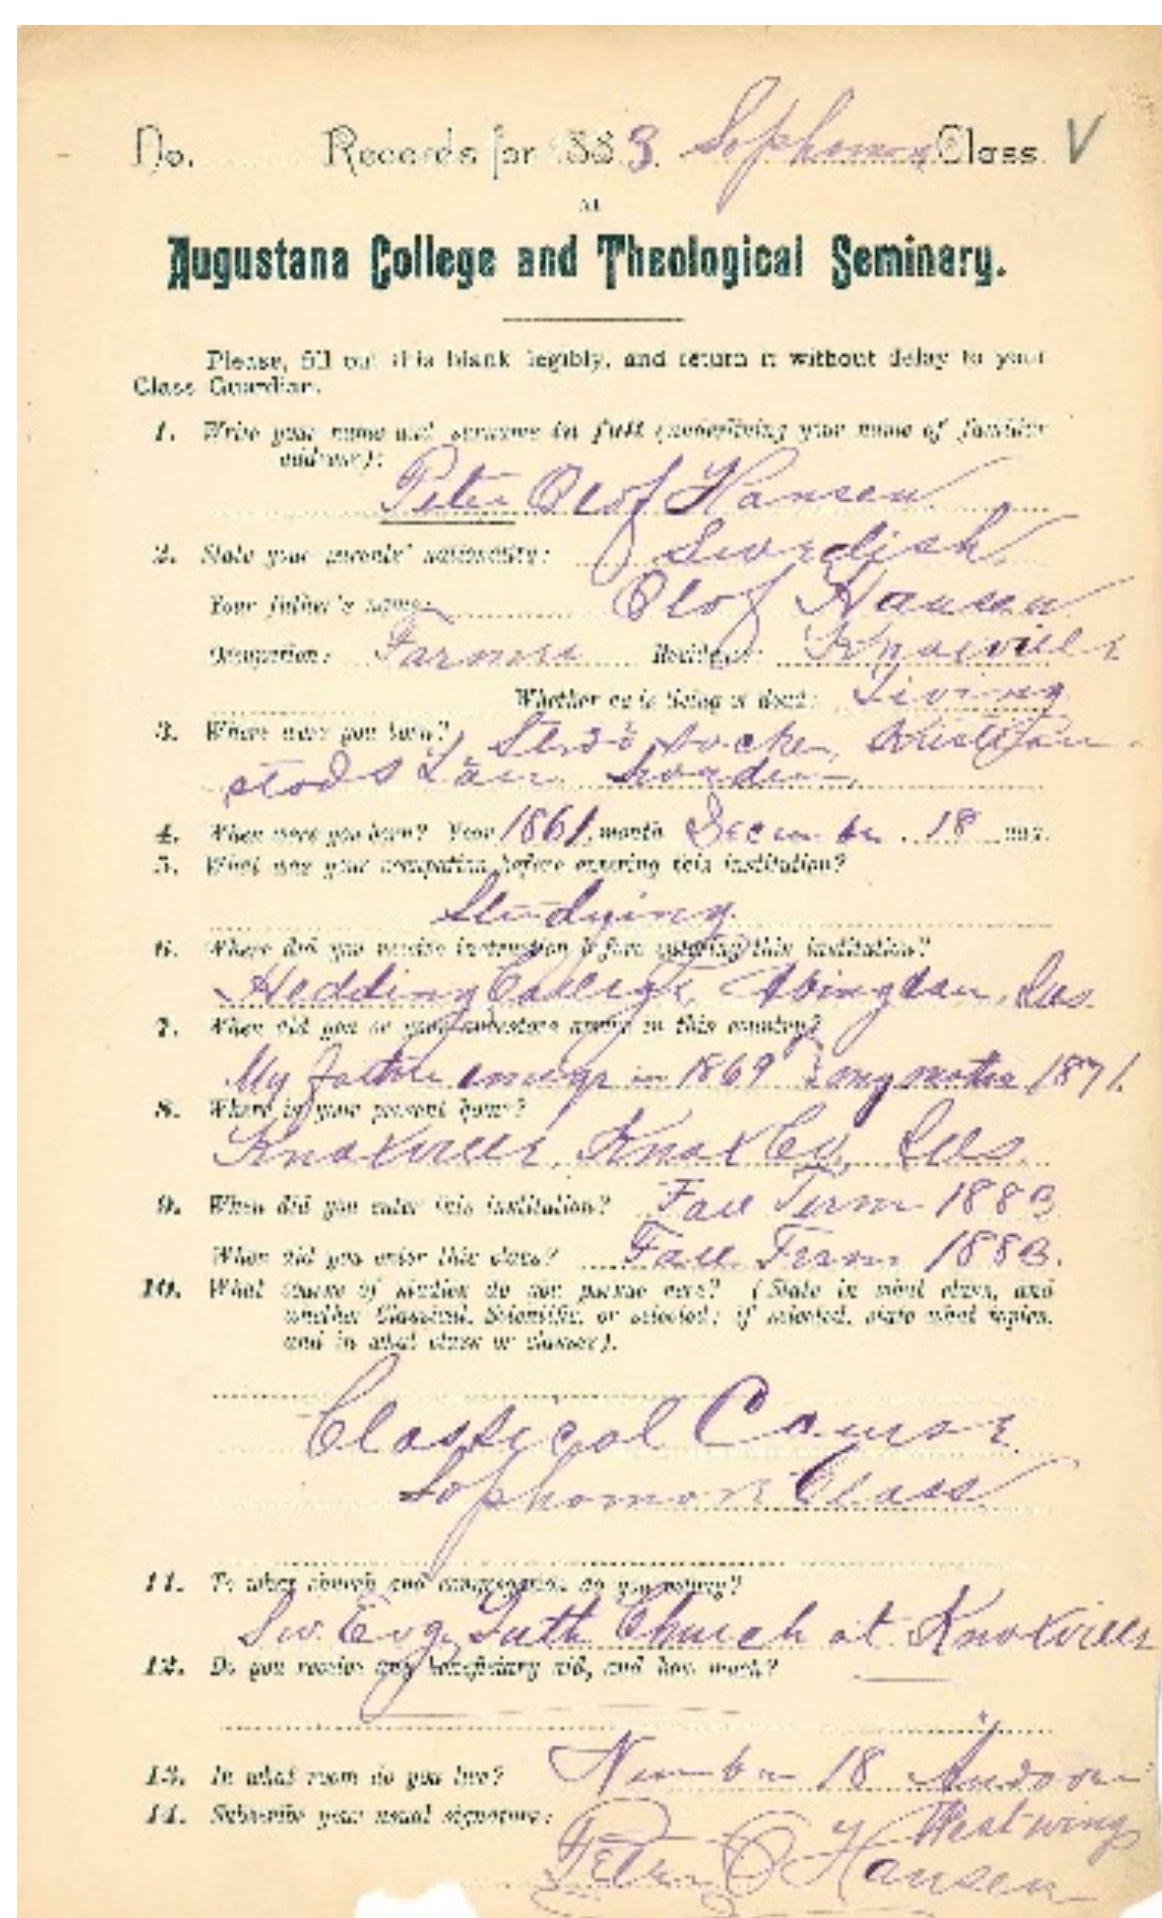 No. Records for 1883. Sophomore Class V
AT
Augustana College and Theological Seminary.
Please, fill out this blank legibly, and return it without delay to your
Class Guardian.
1. Write your name and surname in full (underlining your name of familiar
address):
Peter Olof Hansen
2. State your parents' nationality: Swedish
Your father's name: Olof Hansen
Occupation: Farmer Residence: Knoxville
Whether he is living or dead: Living
3. Where were you born? Socken, Kristian-
stads Län, Sweden,
4. When were you born? Year 1861, month December 18 day.
5. What was your occupation before entering this institution?
Studying
6. Where did you receive instruction before entering this institution?
Hedding College, Abingdon, Ills.
7. When did you or your ancestors arrive in this country?
My father emigr in 1869 & my mother 1871.
8. Where is your present home?
Knoxville, Knox Co, Ills.
9. When did you enter this institution? Fall Term 1883
When did you enter this class? Fall Term 1883.
10. What course of studies do you pursue here? (State in what class, and
whether Classical, Scientific, or selected; if selected, state what topics,
and in what class or classes).
Classical Course
Sophomore Class
11. To what church and congregation do you belong?
Sw. Evg. Luth Church at Knoxville
12. Do you receive any beneficiary aid, and how much?
13. In what room do you live? Number 18
14. Subscribe your usual signature: West wing
Peter O Hansen